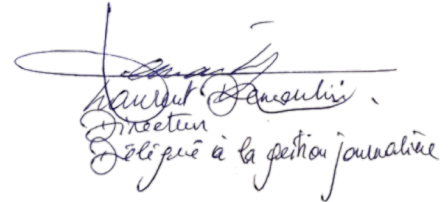 Laurent Demoulin.
Directeur
Délégué à la gestion journalière